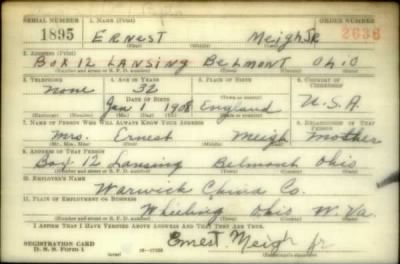 SERIAL NUMBER 1. NAME (Print) ORDER NUMBER
1895 ERNEST Meigh JR 2636
(First) (Middle) (Last)
2. ADDRESS (Print)
BOX 12 LANSING BELMONT OHIO
(Number and street or R. F. D. number) (Town) (County) (State)
3. TELEPHONE 4. AGE IN YEARS 5. PLACE OF BIRTH 6. COUNTRY OF CITIZENSHIP
None 32
DATE OF BIRTH England U.S.A.
Jan 1 1908
(Exchange) (No.) (Mo.) (Day) (Yr.) (State or country)
7. NAME OF PERSON WHO WILL ALWAYS KNOW YOUR ADDRESS 8. RELATIONSHIP OF THAT PERSON
Mrs. Ernest Meigh Mother
(Mr., Mrs., Miss) (First) (Middle) (Last)
9. ADDRESS OF THAT PERSON
Box 12 Lansing Belmont Ohio
(Number and street or R. F. D. number) (Town) (County) (State)
10. EMPLOYER'S NAME
Warwick China Co.
11. PLACE OF EMPLOYMENT OR BUSINESS
Wheeling Ohio W. Va.
(Number and street or R. F. D. number) (Town) (County) (State)
I AFFIRM THAT I HAVE VERIFIED ABOVE ANSWERS AND THAT THEY ARE TRUE.
REGISTRATION CARD
D. S. S. Form 1 Ernest Meigh Jr